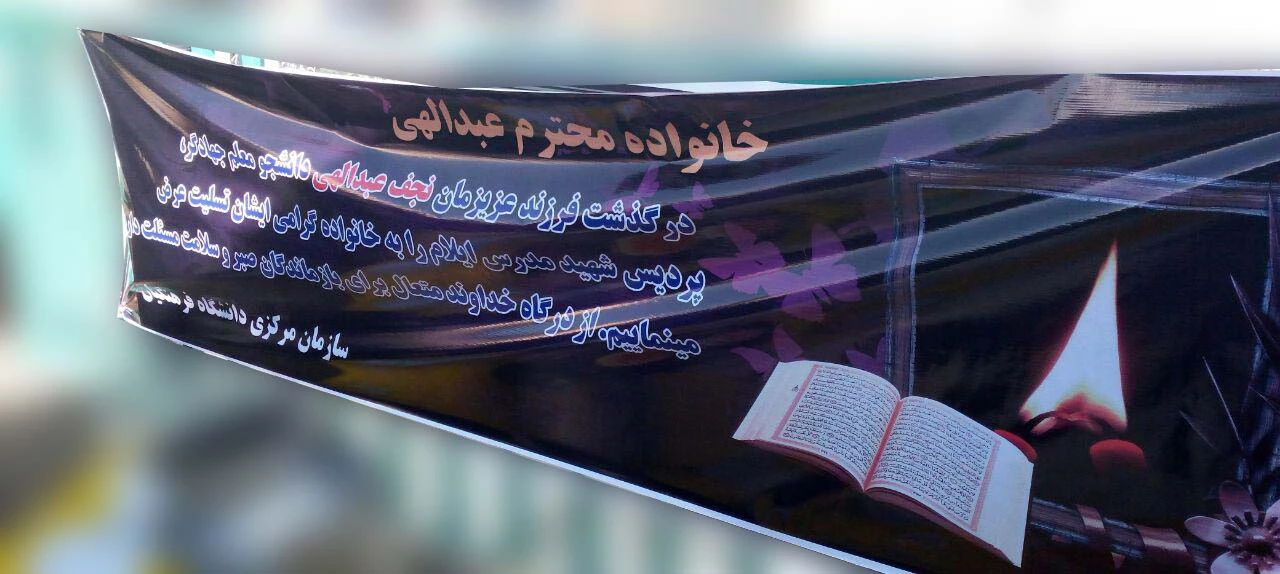 خانواده محترم عبدالهی
در گذشت فرزند عزیزمان نجف عبدالهی دانشجو معلم جهادگر،
پردیس شهید مدرس ایلام را به خانواده گرامی ایشان تسلیت عرض
مینماییم. از درگاه خداوند متعال برای بازماندگان صبر و سلامت مسئلت داریم
سازمان مرکزی دانشگاه فرهنگیان